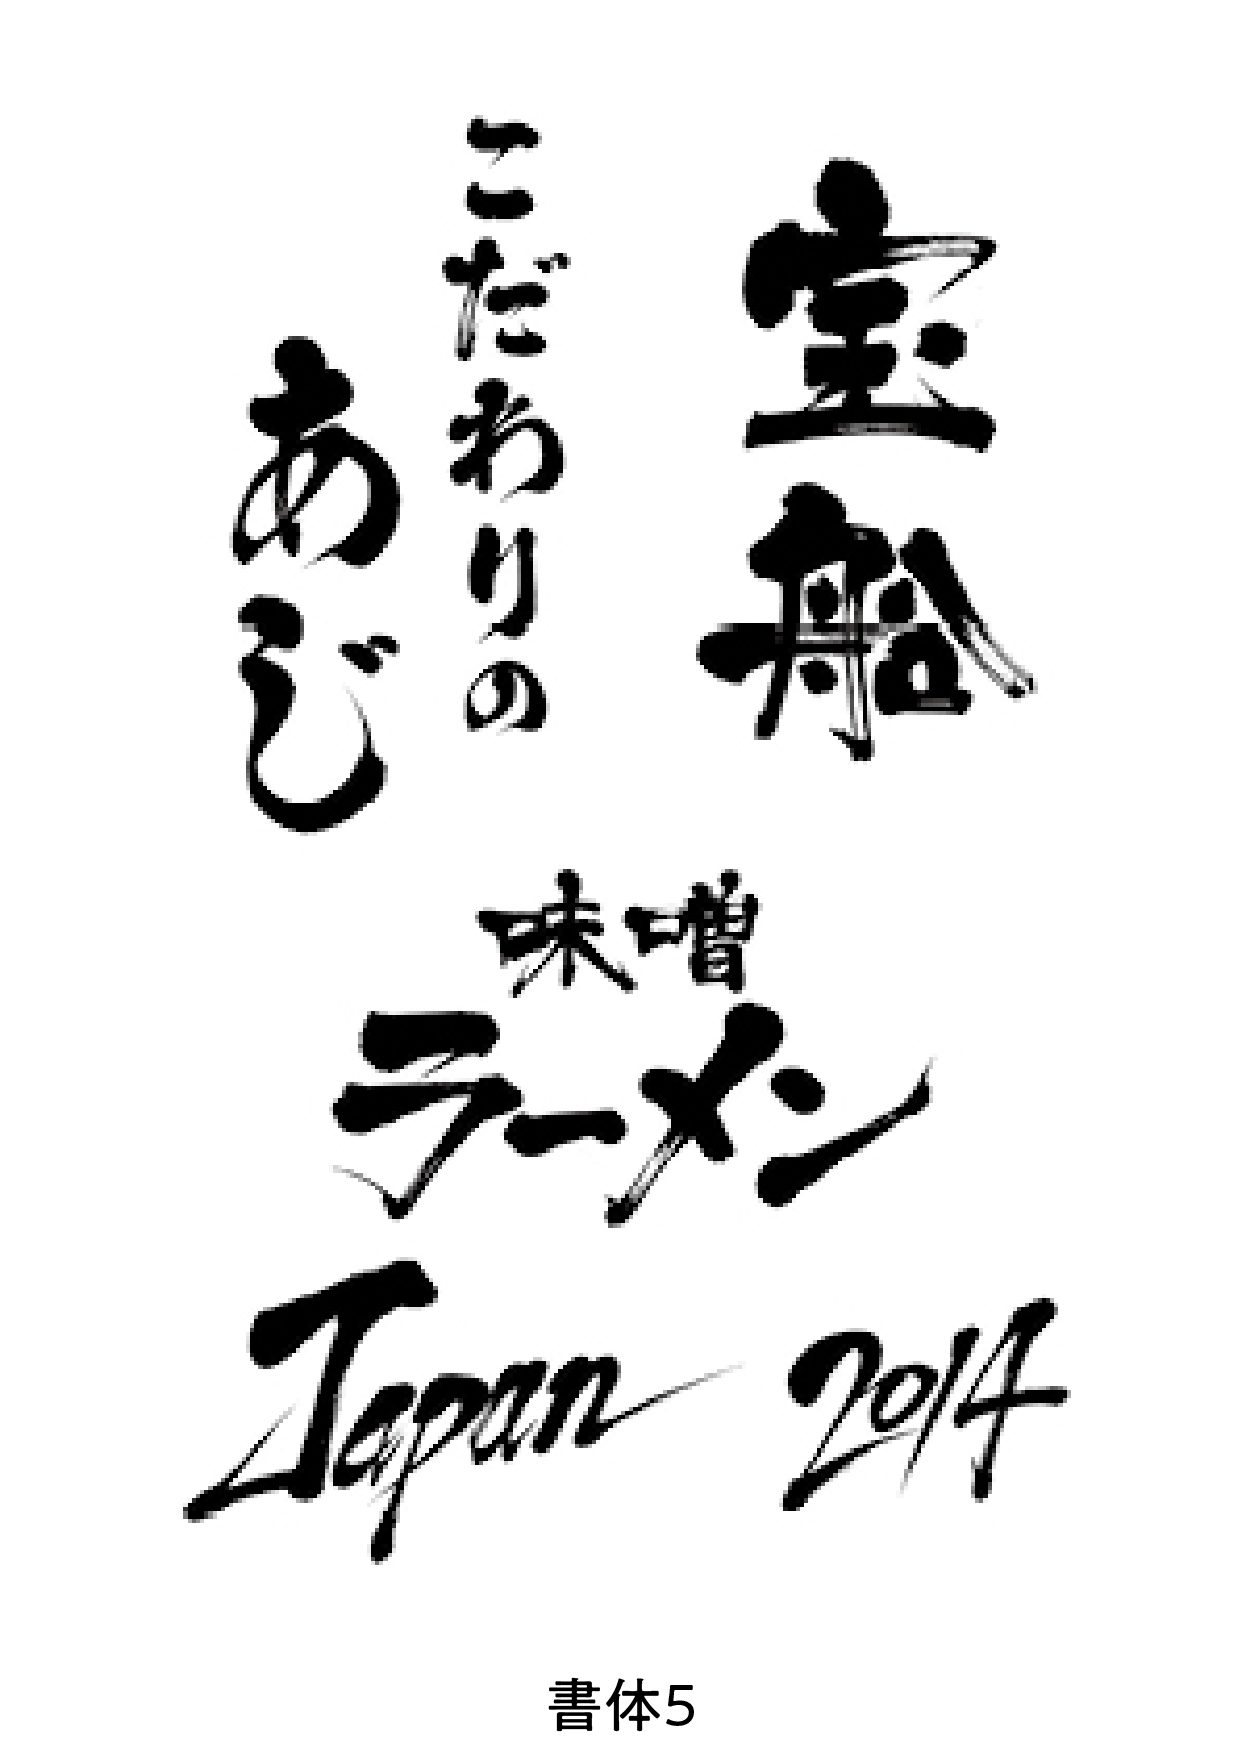 宝船
こだわりの
あじ
味噌
ラーメン
Japan 2014
書体5